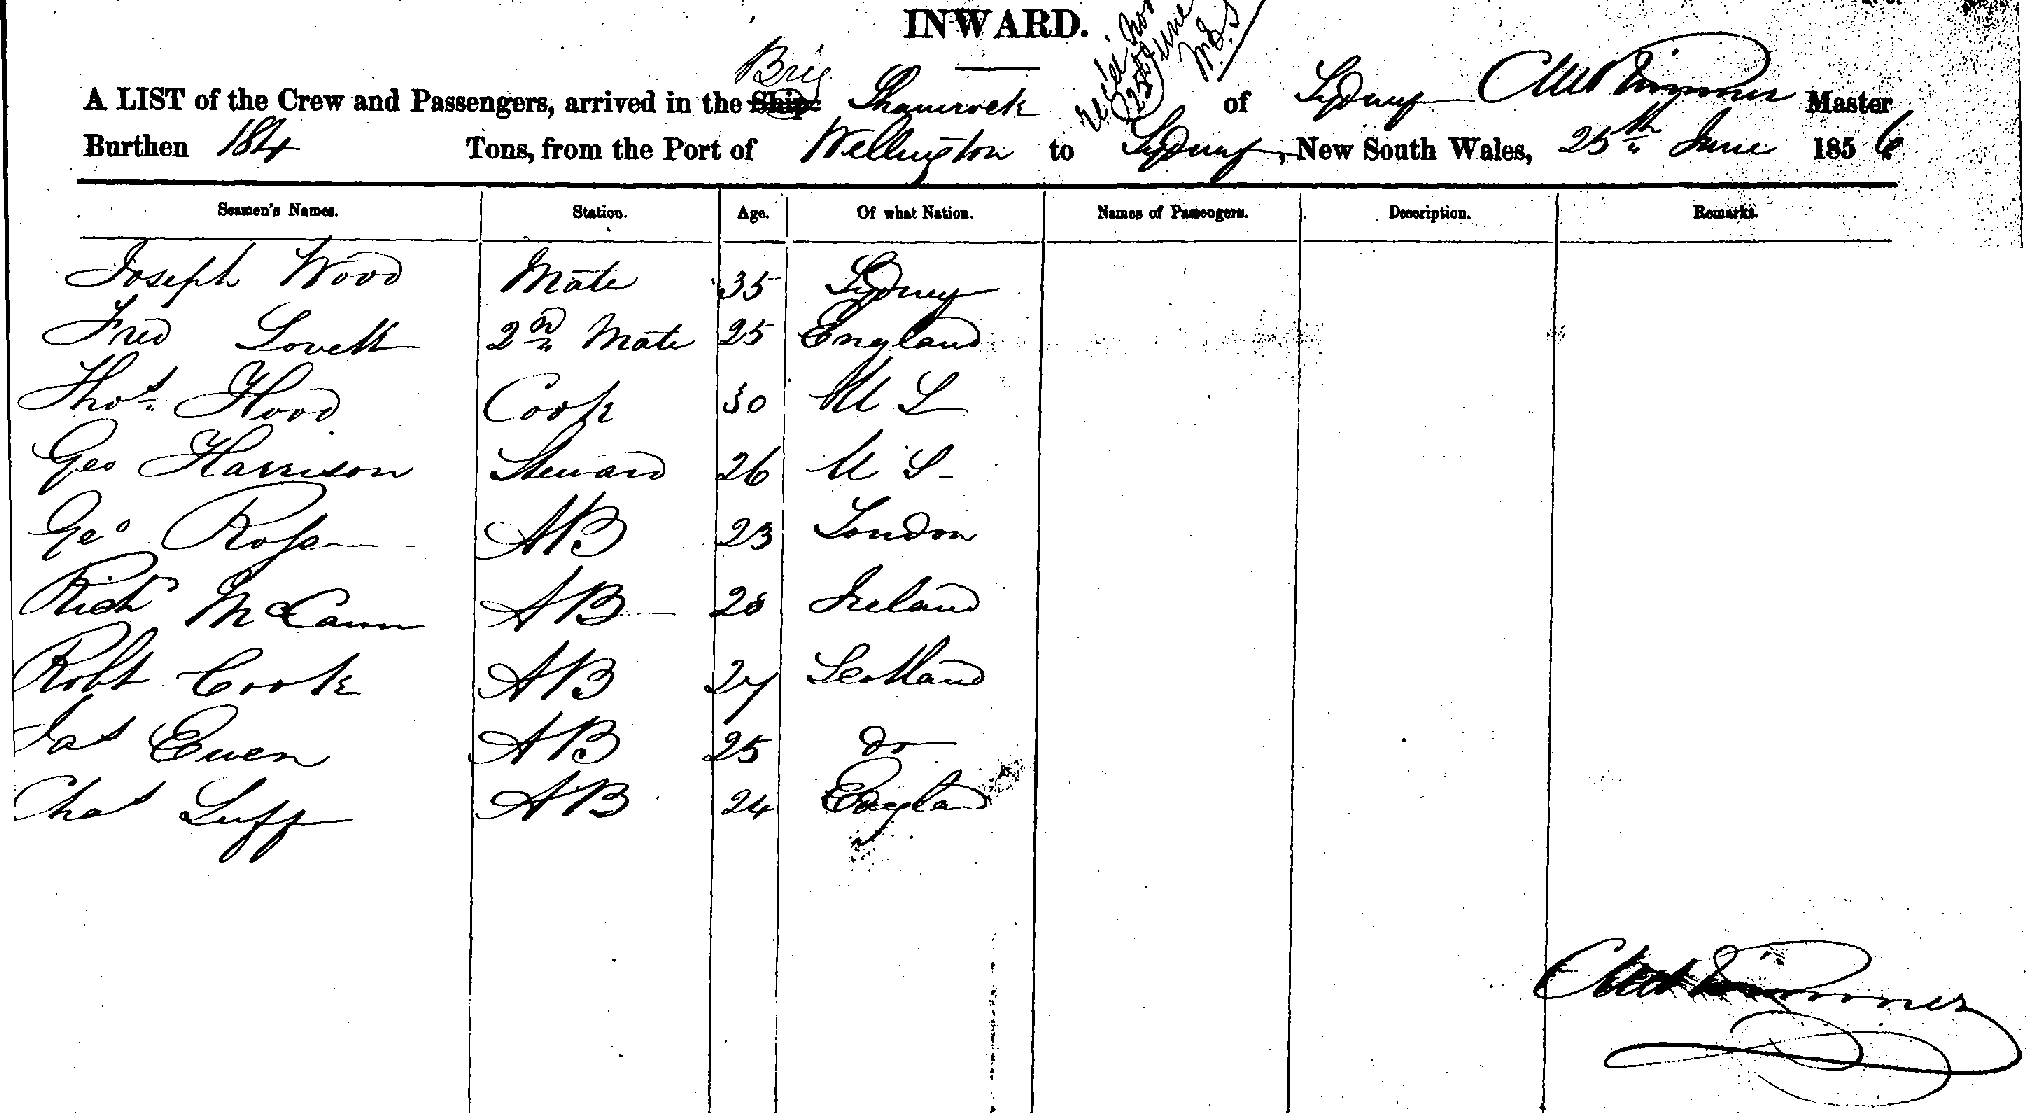 INWARD.
Brig
A LIST of the Crew and Passengers, arrived in the Ship: Shamrock of Sydney Master
Burthen 184 Tons, from the Port of Wellington to Sydney, New South Wales, 25th June 1856
Seamen's Names. Station. Age. Of what Nation. Names of Passengers. Description. Remarks.
Joseph Wood Mate 35 Sydney
Fred Lovett 2nd Mate 25 England
Thos. Hood Cook 30 U S
Geo Harrison Steward 26 U S
Geo Ross AB 23 London
Richd McCann AB 28 Ireland
Robt Cook AB 27 Scotland
Jas Ewen AB 25 do
Chas Luff AB 24 England